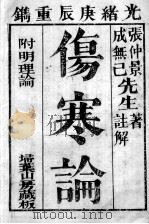 光緒庚辰重鐫
張仲景著
成無己先生註解
傷寒論
附明理論
埽葉山房藏板